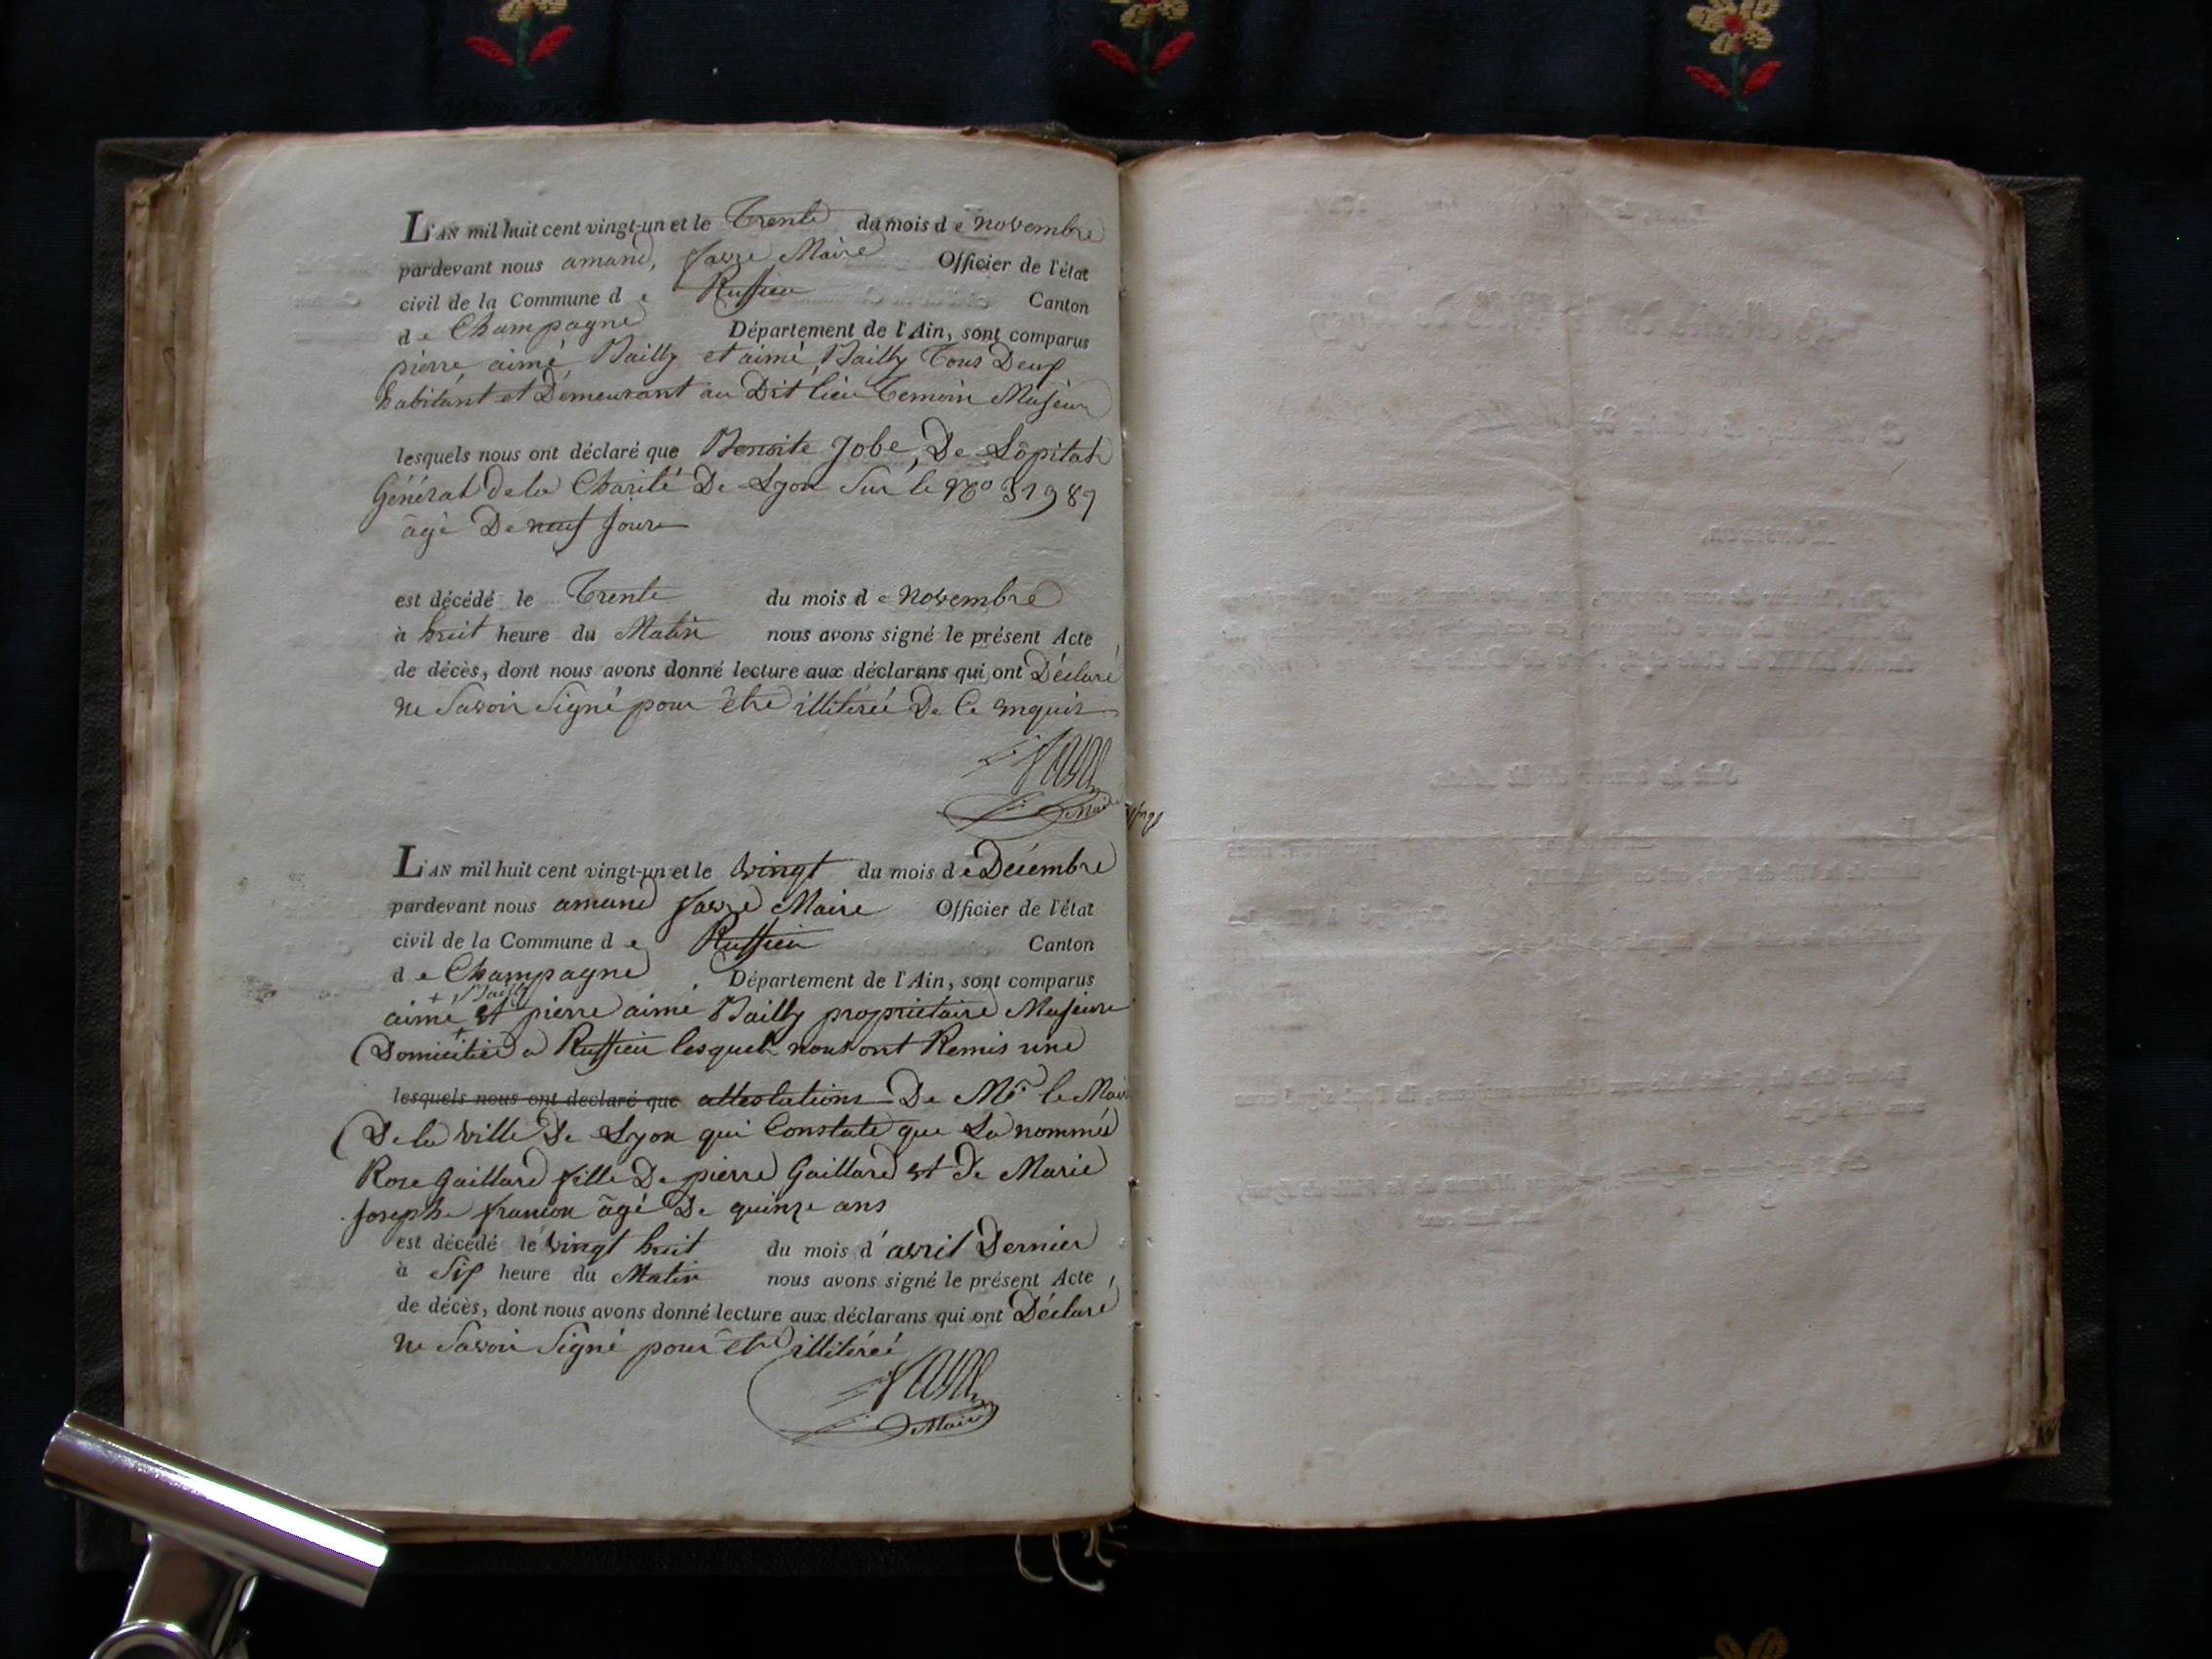 L'AN mil huit cent vingt-un et le Trente du mois d e novembre
pardevant nous amand, favre Maire Officier de l'état
civil de la Commune d e Ruffieu Canton
d e Champagne Département de l'Ain, sont comparus
pierre aimé Bailly et aimé Bailly Tous Deux
habitant et Demeurant au Dit lieu Temoin Majeur
lesquels nous ont déclaré que Benoite Jobe, De Lôpital
Général de la Charité De Lyon Sur le No 31987
âgé De neuf jours
est décédé le Trente du mois d e novembre
à huit heure du Matin nous avons signé le présent Acte
de décès, dont nous avons donné lecture aux déclarans qui ont Déclaré
ne Savoir Signé pour être illitéré De Ce enquis
favre
Maire
L'AN mil huit cent vingt-un et le vingt du mois d e Décembre
pardevant nous amand favre Maire Officier de l'état
civil de la Commune d e Ruffieu Canton
d e Champagne Département de l'Ain, sont comparus
+ Bailly
aimé et pierre aimé Bailly propriétaire Majeure
Domicilié a Ruffieu lesquel nous ont Remis une
lesquels nous ont déclaré que attestations De Mr le Maire
De la ville De Lyon qui Constate que La nommé
Rose Gaillard fille De pierre Gaillard et De Marie
Josephe âgé De quinze ans
est décédé le vingt huit du mois d' avril Dernier
à Six heure du Matin nous avons signé le présent Acte
de décès, dont nous avons donné lecture aux déclarans qui ont Déclaré
ne Savoir Signé pour être illitéré
favre
Maire